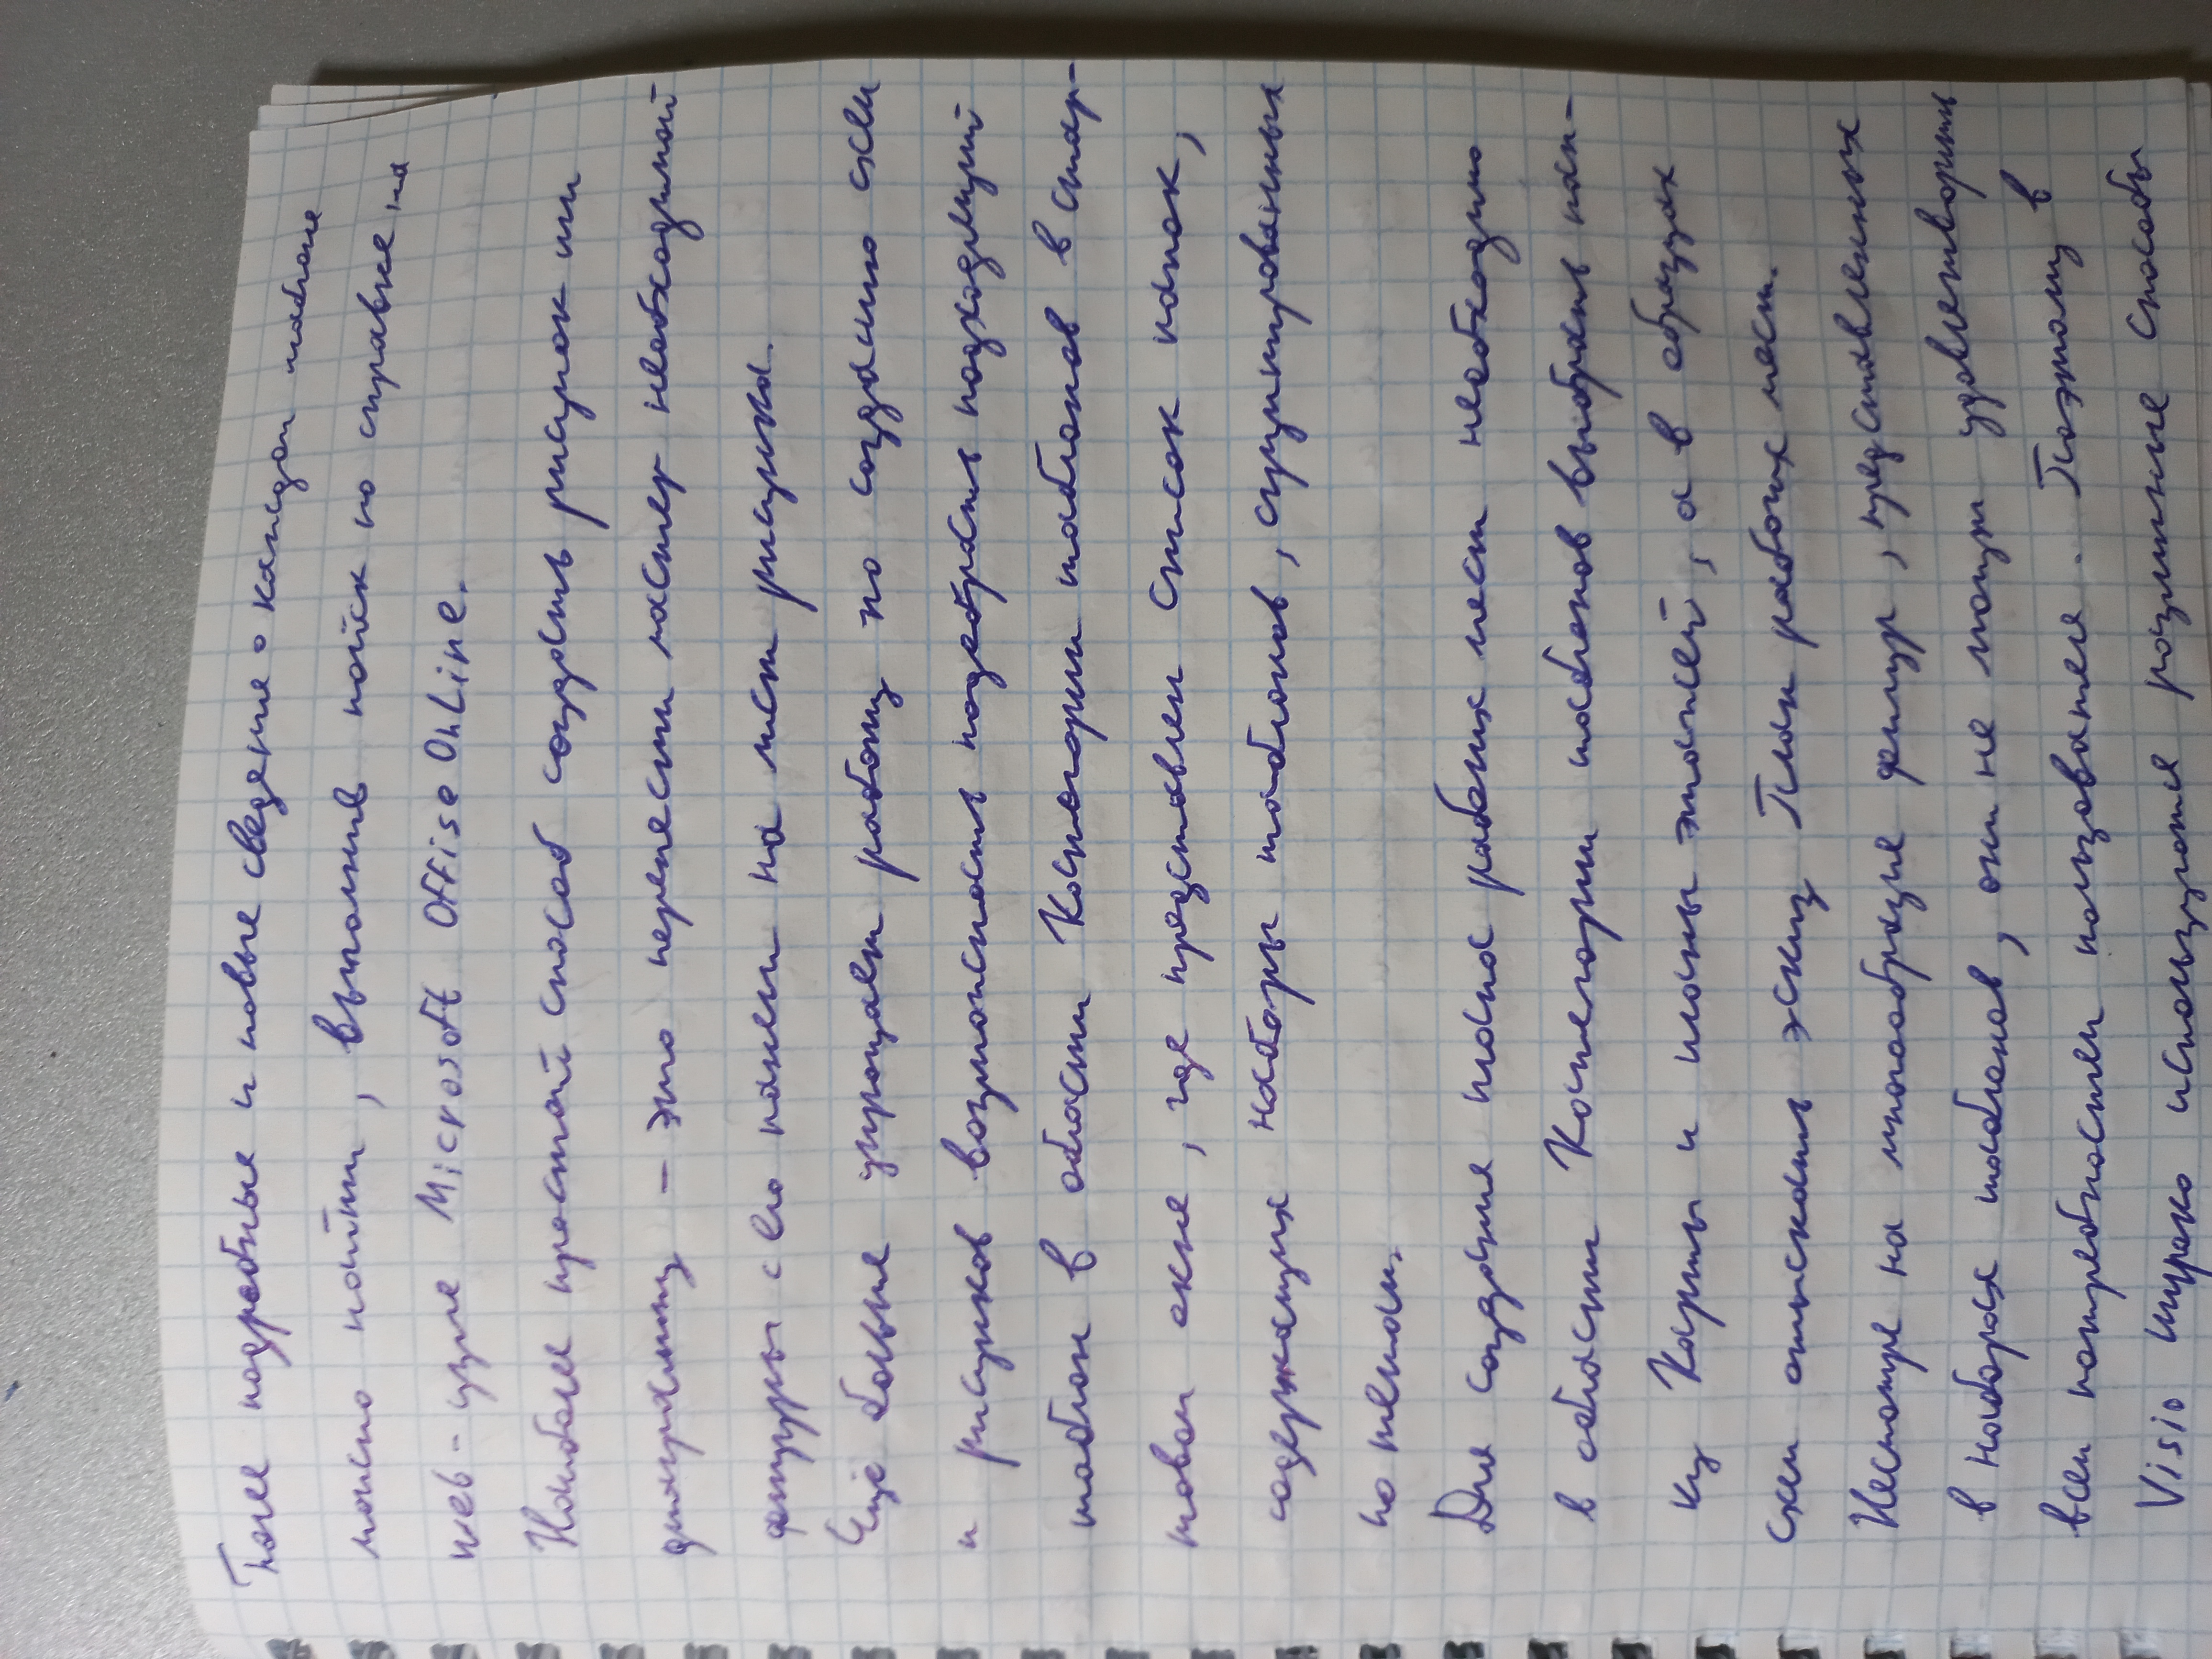 Более подробные и новые сведения о каждом шаблоне
можно найти, выполнив поиск по справке, на
веб-узле Microsoft Offise Online.
Наиболее простой способ создать рисунок или
диаграмму – это перенести мастер необходимой
фигуры с его панели на лист рисунка.
Ещё больше упрощает работу по созданию схем
и рисунков возможность подобрать подходящий
шаблон в области Категории шаблонов в стар-
товом окне, где представлен список папок,
содержащих наборы шаблонов, сгруппированных
по темам.
Для создания плана рабочих мест необходимо
в области Категории шаблонов выбрать пап-
ку Карты и планы этажей, а в образцах
схем отыскать эскиз План рабочих мест.
Несмотря на многообразие фигур, представленных
в наборах шаблонов, они не могут удовлетворить
всем потребностям пользователя. Поэтому в
Visio широко используются различные способы